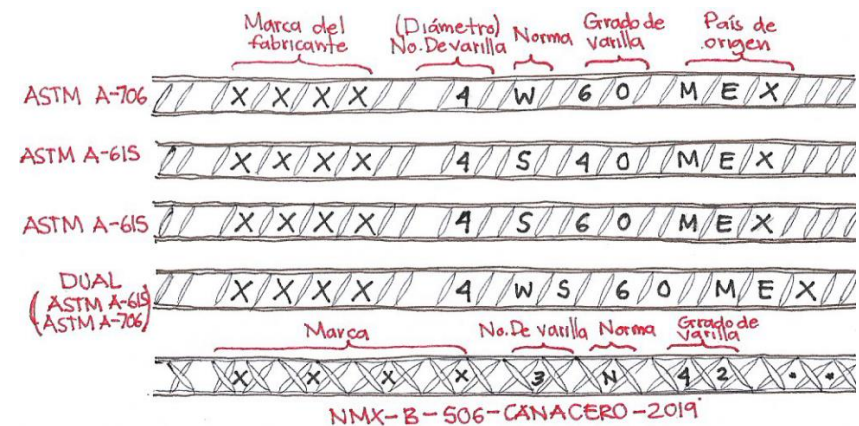 Marca del fabricante (Diámetro) No. De varilla Norma Grado de varilla País de origen
ASTM A-706 X X X X 4 W 60 MEX
ASTM A-615 X X X X 4 S 40 MEX
ASTM A-615 X X X X 4 S 60 MEX
DUAL (ASTM A-615 ASTM A-706) X X X X 4 W S 60 MEX
Marca No. De varilla Norma Grado de varilla
X X X X X 3 N 42 * *
NMX-B-506-CANACERO-2019